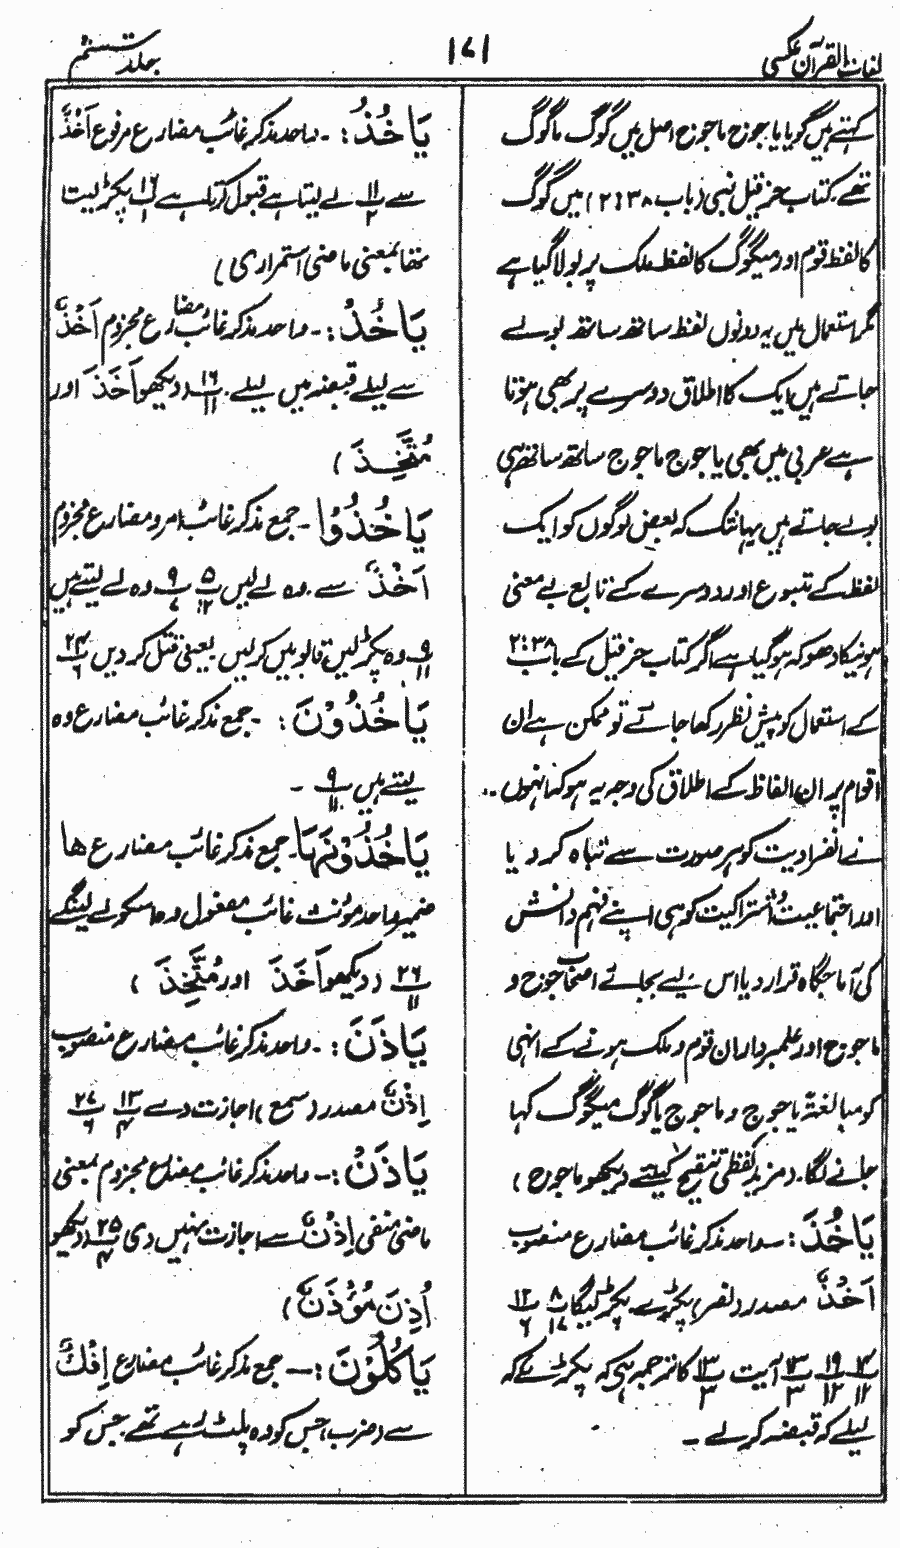 لغات القرآن عکسی
۱۷۱
جلد ششم
کہتے ہیں گویا یاجوج ماجوج اصل میں گوگ ماگوگ
تھے۔ کتاب حزقیل نبی (باب ۳۸ : ۲) میں گوگ
کا لفظ قوم اور میگوگ کا لفظ ملک پر بولا گیا ہے
مگر استعمال میں یہ دونوں لفظ ساتھ ساتھ بولے
جاتے ہیں ایک کا اطلاق دوسرے پر بھی ہوتا
ہے عربی میں بھی یاجوج ماجوج ساتھ ساتھ ہی
بولے جاتے ہیں یہانتک کہ بعض لوگوں کو ایک
لفظ کے متبوع اور دوسرے کے تابع بے معنی
ہونیکا دھوکہ ہو گیا ہے اگر کتاب حزقیل کے باب ۳۸ : ۲
کے استعمال کو پیش نظر رکھا جائے تو ممکن ہے ان
اقوام پر ان الفاظ کے اطلاق کی وجہ یہ ہو کہ انہوں
نے انفرادیت کو ہر صورت سے تباہ کر دیا
اور اجتماعیت و اشتراکیت کو ہی اپنے فہم و دانش
کی آماجگاہ قرار دیا اس لیے بجائے اصحاب جوج و
ماجوج اور علمبرداران قوم و ملک ہونے کے انہی
کو مبالغۃً یاجوج و ماجوج یا گوگ میگوگ کہا
جانے لگا۔ (مزید لفظی تنقیح کیلئے دیکھو ماجوج)
یَاْخُذَ : ۔ واحد مذکر غائب مضارع منصوب
اَخْذٌ مصدر (نصر) پکڑے۔ پکڑ لیگا ۸/۱۷ ۱۲/۶
۷/۱۲ ۱۹/۱۲ ۷/۳ آیت ۱۳/۳ کا ترجمہ ہی کہ پکڑ سکے کہ
لیلے کہ قبضہ کرلے ۔
یَاْخُذُ : ۔ واحد مذکر غائب مضارع مرفوع اَخْذٌ
سے ۱۱/۲ لے لیتا ہے قبول کرتا ہے ۱۶/۱ پکڑ لیتا
تھا بمعنی ماضی استمراری )
یَاْخُذْ : ۔ واحد مذکر غائب مضارع مجزوم اَخْذٌ
سے لیلے قبضہ میں لیلے ۔ ۱۶/۱۱ (دیکھو اَخَذَ اور
مُتَّخِذَ )
یَاْخُذُوْا ۔ جمع مذکر غائب امر و مضارع مجزوم
اَخْذٌ سے ۔ وہ لے لیں ۵/۱۲ ۹/۷ وہ لے لیتے ہیں
۹/۱۱ وہ پکڑ لیں قابو میں کر لیں ۔ یعنی قتل کر دیں ۲۴/۶
یَاْخُذُوْنَ : ۔ جمع مذکر غائب مضارع وہ
لیتے ہیں ۹/۱۱ ۔
یَاْخُذُوْنَهَا ۔ جمع مذکر غائب مضارع ھا
ضمیر واحد مؤنث غائب مفعول وہ اسکو لے لینگے
۲۶/۱۱ (دیکھو اَخَذَ اور مُتَّخِذَ )
یَاْذَنَ : ۔ واحد مذکر غائب مضارع منصوب
اِذْنٌ مصدر (سمع) اجازت دے ۱۳/۴ ۲۷/۶
یَاْذَنْ : ۔ واحد مذکر غائب مضارع مجزوم بمعنی
ماضی منفی اِذْنٌ سے اجازت نہیں دی ۲۵/۴ (دیکھو
اُذِنَ مُؤَذِّنٌ )
یَاْكُلُوْنَ : ۔ جمع مذکر غائب مضارع اِفْكٌ
سے (ضرب) جس کو وہ پلٹ رہے تھے ۔ جس کو